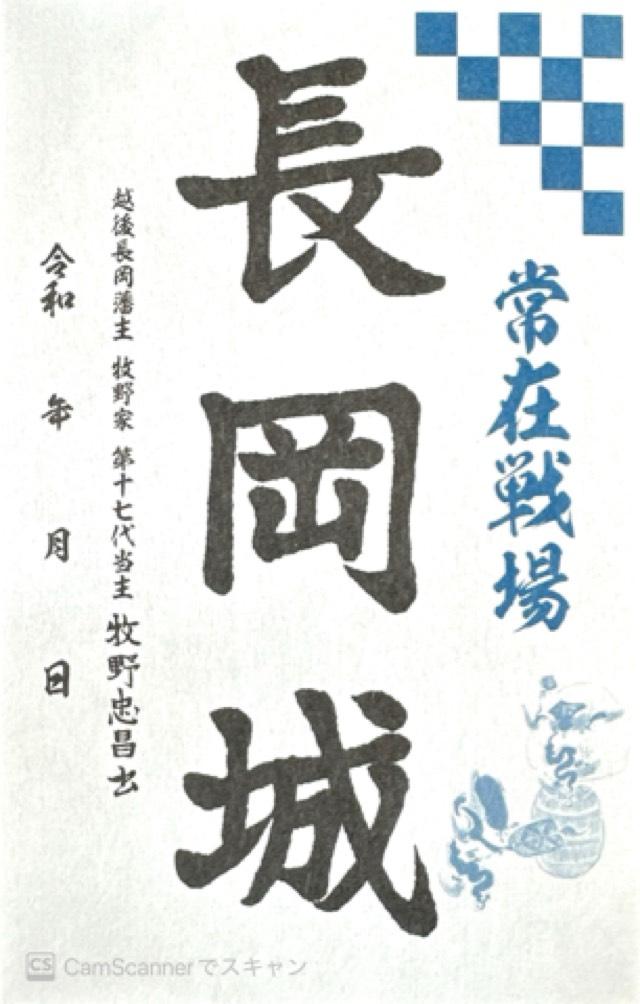 常在戦場
長岡城
越後長岡藩主 牧野家 第十七代当主 牧野忠昌書
令和 年 月 日
CS CamScannerでスキャン